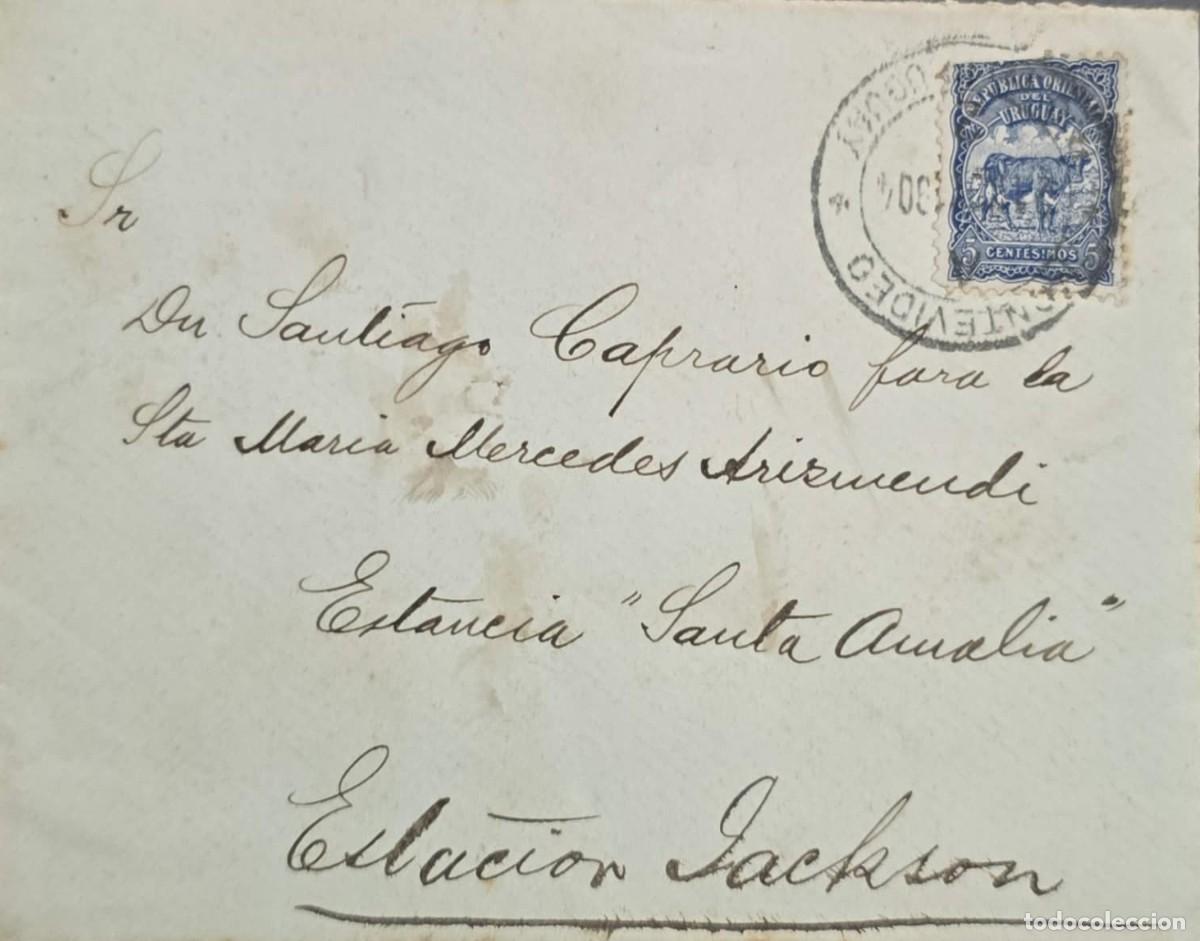 Sr
Dn Santiago Caprario para la
Sta Maria Mercedes Arizmendi
Estancia "Santa Amalia"
Estación Jackson
REPUBLICA ORIENTAL
DEL
URUGUAY
5 CENTÉSIMOS 5
MONTEVIDEO
URUGUAY
1904
todocoleccion